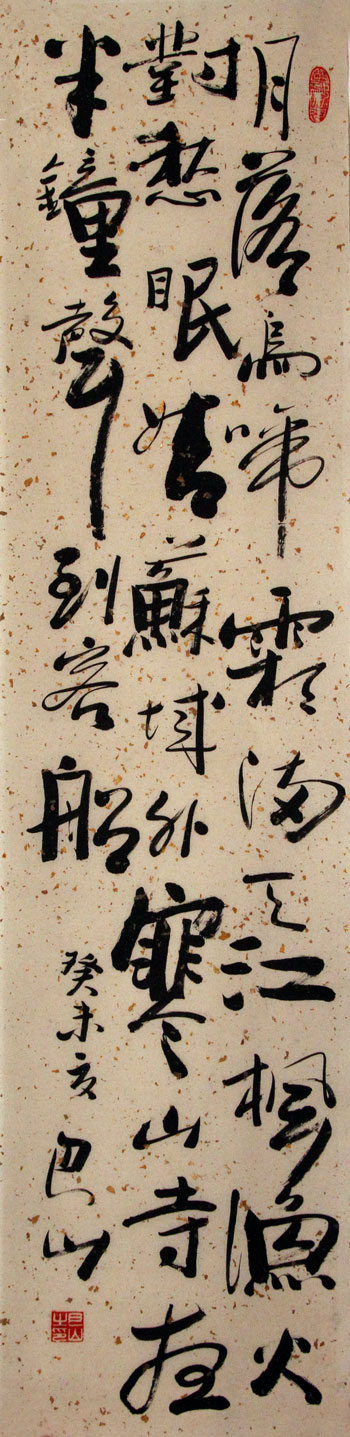 月落烏啼霜滿天江楓漁火
對愁眠姑蘇城外寒山寺夜
半鐘聲到客船
癸未夏巴山